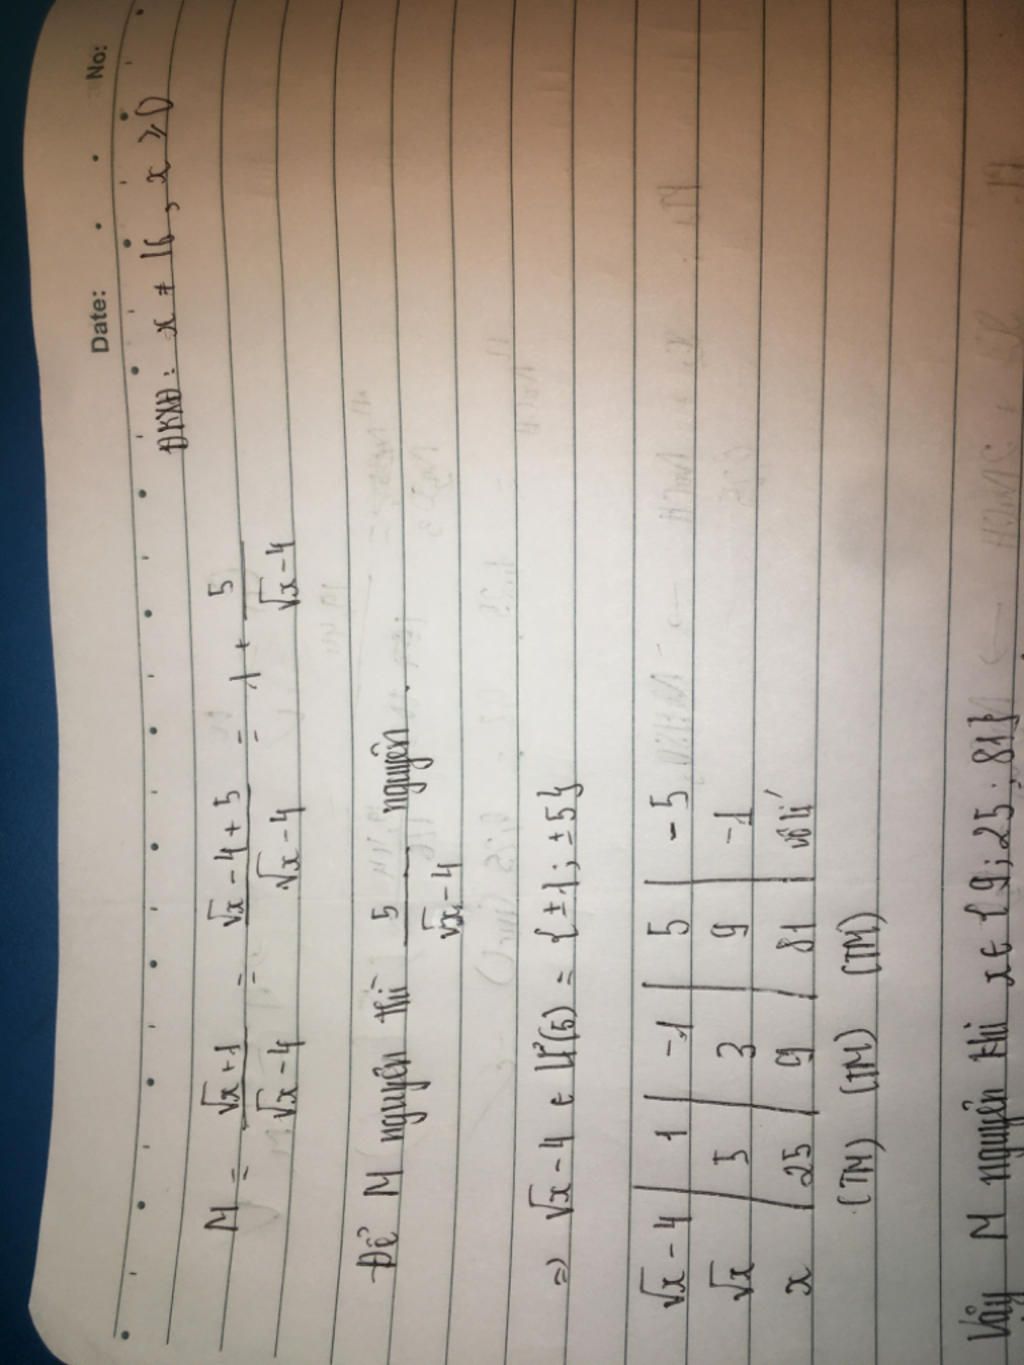 Date: No:
ĐKXĐ: x ≠ 16, x ≥ 0
M = √x+1 / √x-4 = √x-4+5 / √x-4 = 1 + 5 / √x-4
Để M nguyên thì 5 / √x-4 nguyên.
=> √x-4 ∈ Ư(5) = {±1; ±5}
√x-4 | 1 | -1 | 5 | -5
√x | 5 | 3 | 9 | -1
x | 25 | 9 | 81 | vô lí
(TM) (TM) (TM)
Vậy M nguyên khi x ∈ {9; 25; 81}